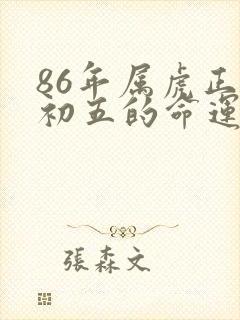 86年属虎正
初五的命運
張森文